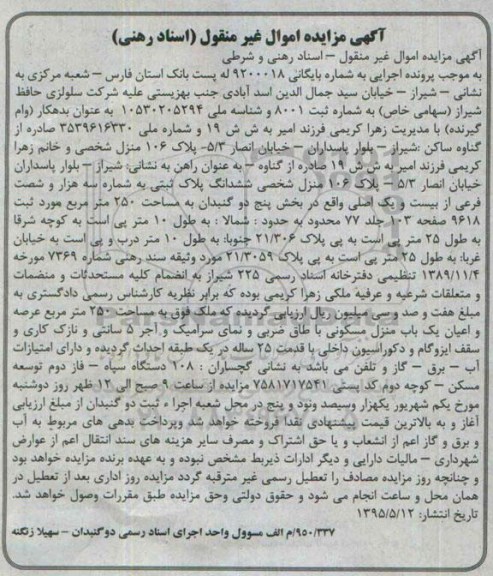 آگهی مزایده اموال غیر منقول (اسناد رهنی)
آگهی مزایده اموال غیر منقول – اسناد رهنی و شرطی
به موجب پرونده اجرایی به شماره بایگانی ۹۲۰۰۰۱۸ له پست بانک استان فارس – شعبه مرکزی به
نشانی – شیراز – خیابان سید جمال الدین اسد آبادی جنب بهزیستی علیه شرکت سلولزی حافظ
شیراز (سهامی خاص) به شماره ثبت ۸۰۰۱ و شناسه ملی ۱۰۵۳۰۲۰۵۲۹۴ به عنوان بدهکار (وام
گیرنده) با مدیریت زهرا کریمی فرزند امیر به ش ش ۱۹ و شماره ملی ۳۵۳۹۶۱۶۳۳۰ صادره از
گناوه ساکن :شیراز – بلوار پاسداران – خیابان انصار ۵/۳– پلاک ۱۰۶ منزل شخصی و خانم زهرا
کریمی فرزند امیر به ش ش ۱۹ صادره از گناوه – به عنوان راهن به نشانی: شیراز – بلوار پاسداران
خیابان انصار ۵/۳ – پلاک ۱۰۶ منزل شخصی ششدانگ پلاک ثبتی به شماره سه هزار و شصت
فرعی از بیست و یک اصلی واقع در بخش پنج دو گنبدان به مساحت ۲۵۰ متر مربع مورد ثبت
۹۶۱۸ صفحه ۱۰۳ جلد ۷۷ محدود به حدود : شمالا : به طول ۱۰ متر پی است به کوچه شرقا
به طول ۲۵ متر پی است به پی پلاک ۲۱/۳۰۶ جنوبا: به طول ۱۰ متر درب و پی است به خیابان
غربا: به طول ۲۵ متر پی است به پی پلاک ۲۱/۳۰۵۹ مورد وثیقه سند رهنی شماره ۷۳۶۹ مورخه
۱۳۸۹/۱۱/۴ تنظیمی دفترخانه اسناد رسمی ۲۲۵ شیراز به انضمام کلیه مستحدثات و منضمات
و متعلقات شرعیه و عرفیه ملکی زهرا کریمی بوده که برابر نظریه کارشناس رسمی دادگستری به
مبلغ هفت و صد و سی میلیون ریال ارزیابی گردیده که ملک فوق به مساحت ۲۵۰ متر مربع عرصه
و اعیان یک باب منزل مسکونی با طاق ضربی و نمای سرامیک و آجر ۵ سانتی و نازک کاری و
سقف ایزوگام و دکوراسیون داخلی با قدمت ۲۵ ساله در یک طبقه احداث گردیده و دارای امتیازات
آب – برق – گاز و تلفن می باشد، به نشانی گچساران : ۱۰۸ دستگاه سپاه – فاز دوم توسعه
مسکن – کوچه دوم کد پستی ۷۵۸۱۷۱۷۵۴۱ مزایده از ساعت ۹ صبح الی ۱۲ ظهر روز دوشنبه
مورخ یکم شهریور یکهزار وسیصد ونود و پنج در محل شعبه اجرا ، ثبت دو گنبدان از مبلغ ارزیابی
آغاز و به بالاترین قیمت پیشنهادی نقدا فروخته خواهد شد وپرداخت بدهی های مربوط به آب
و برق و گاز اعم از انشعاب و یا حق اشتراک و مصرف سایر هزینه های سند انتقال اعم از عوارض
شهرداری – مالیات دارایی و دیگر ادارات ذیربط مشخص نبوده و به عهده برنده مزایده خواهد بود
و چنانچه روز مزایده مصادف را تعطیل رسمی غیر مترقبه گردد مزایده روز اداری بعد از تعطیل در
همان محل و ساعت انجام می شود و حقوق دولتی وحق مزایده طبق مقررات وصول خواهد شد.
تاریخ انتشار: ۱۳۹۵/۵/۱۲
۹۵۰/۳۳۷/م الف مسوول واحد اجرای اسناد رسمی دوگنبدان – سهیلا زنگنه